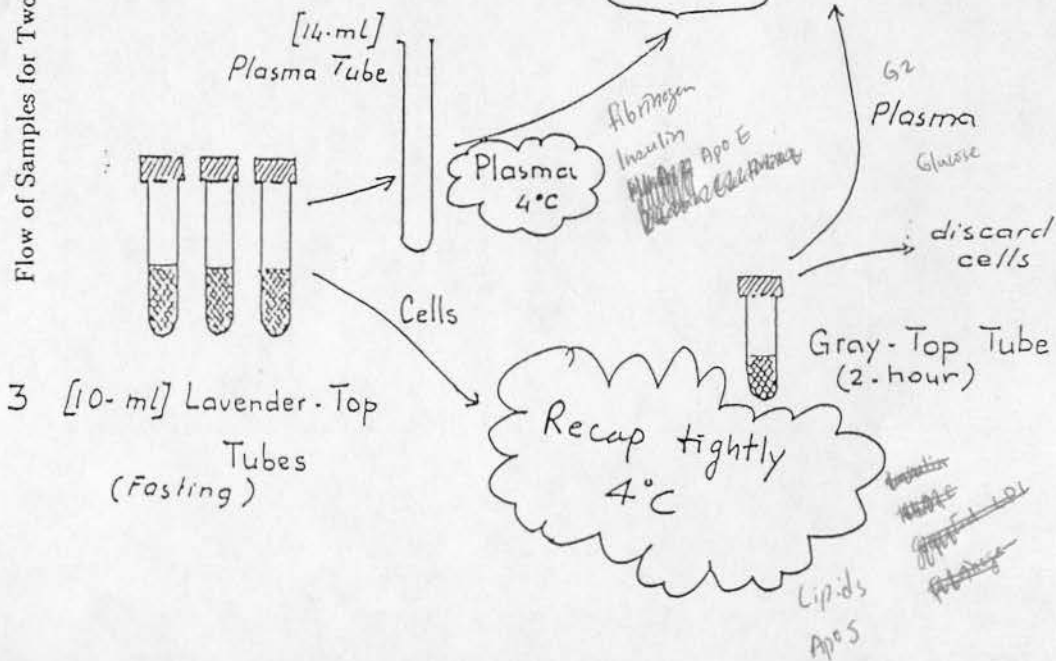 Flow of Samples for Two
[14-ml]
Plasma Tube
Plasma
4°C
Fibrinogen
Insulin
Apo E
G2
Plasma
Glucose
discard
cells
Cells
Gray-Top Tube
(2-hour)
3 [10-ml] Lavender-Top
Tubes
(Fasting)
Recap tightly
4°C
Lipids
Apo S